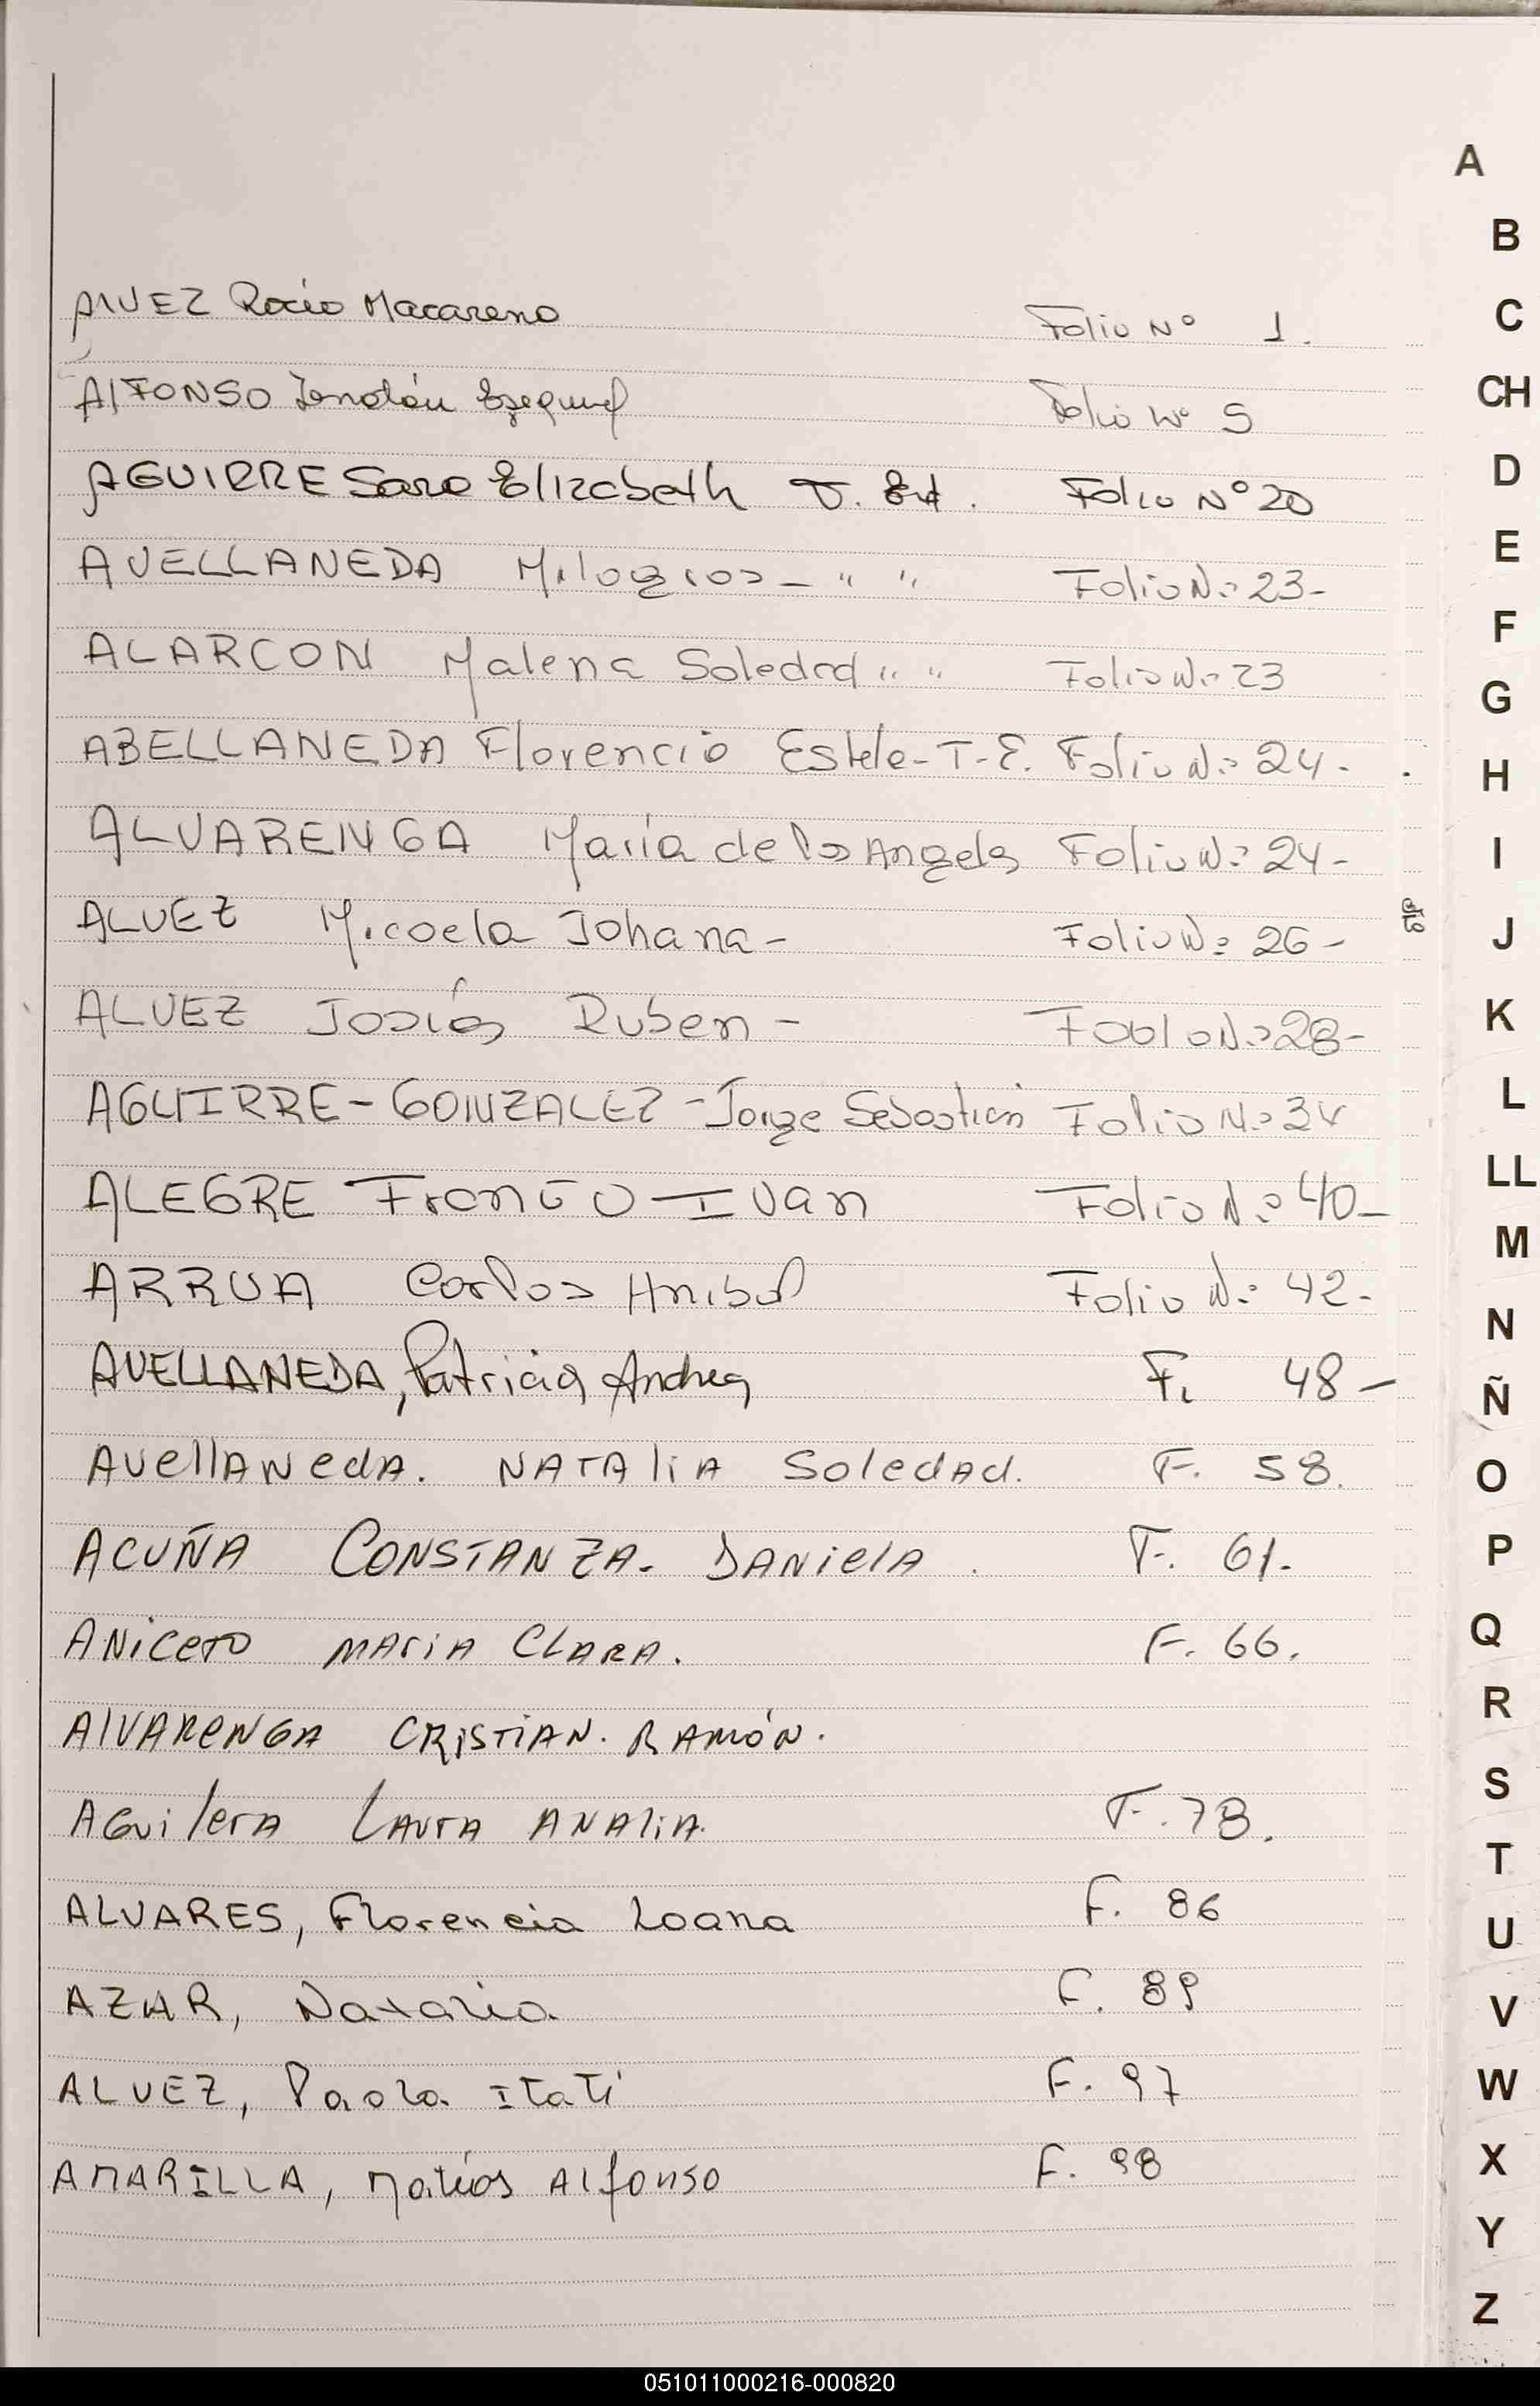 ALVEZ Rocío Macarena Folio Nº 1.
ALFONSO Jonatán Ezequiel Folio Nº 5
AGUIRRE Sara Elizabeth T. Ext. Folio Nº 20
AVELLANEDA Milagros - " " Folio N.º 23-
ALARCON Malena Soledad " " Folio N.º 23
ABELLANEDA Florencia Estela - T.E. Folio N.º 24-
ALVARENGA María de los Angeles Folio N.º 24-
ALVEZ Micaela Johana - Folio N.º 26-
ALVEZ Josías Ruben - Foolo N.º 28-
AGUIRRE - GONZALEZ - Jorge Sebastian Folio N.º
ALEGRE Franco Ivan Folio N.º 40-
ARRUA Carlos Anibal Folio N.º 42-
AVELLANEDA, Patricia Andrea F. 48-
AVellANedA. NATAliA SoledAd. F. 58.
ACUÑA CONSTANZA. DANielA. F. 61.
ANiceTO MAriA CLARA. F. 66.
AlVAReNGA CRiSTiAN. RAMÓN.
AGuilerA LAurA ANAliA. F. 78.
ALVARES, Florencia Loana F. 86
AZAR, Natalia F. 89
ALVEZ, Paola Itatí F. 97
AMARILLA, Matías Alfonso F. 98
A
B
C
CH
D
E
F
G
H
I
J
K
L
LL
M
N
Ñ
O
P
Q
R
S
T
U
V
W
X
Y
Z
051011000216-000820